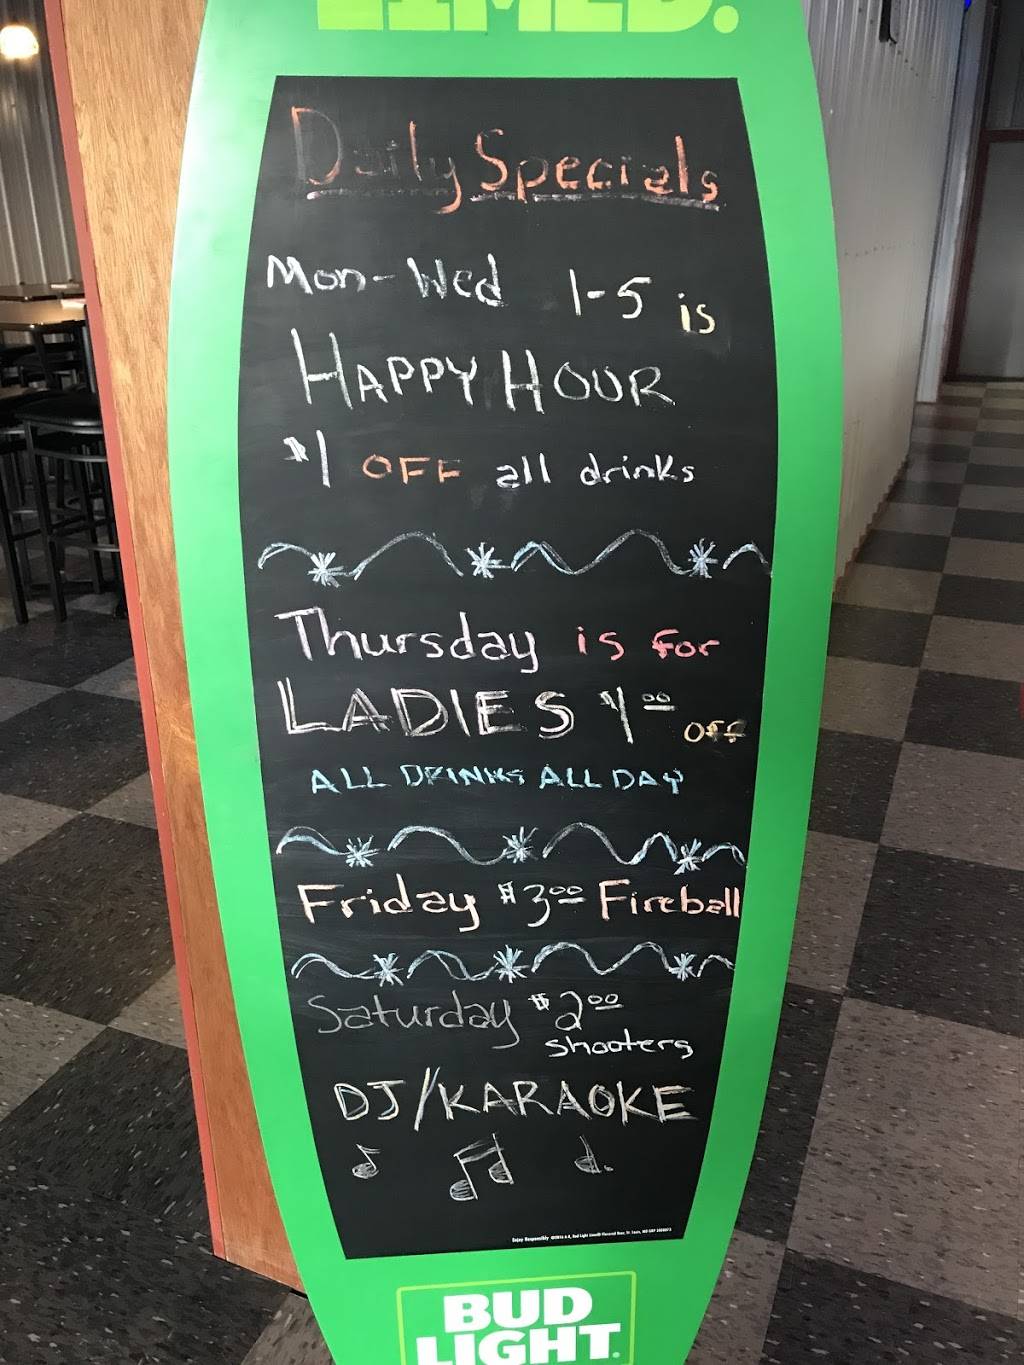 LIMED.
Daily Specials
Mon-Wed 1-5 is
HAPPY HOUR
$1 OFF all drinks
Thursday is for
LADIES $1.00 OFF
ALL DRINKS ALL DAY
Friday $3.00 Fireball
Saturday $2.00
shooters
DJ/KARAOKE
BUD
LIGHT.